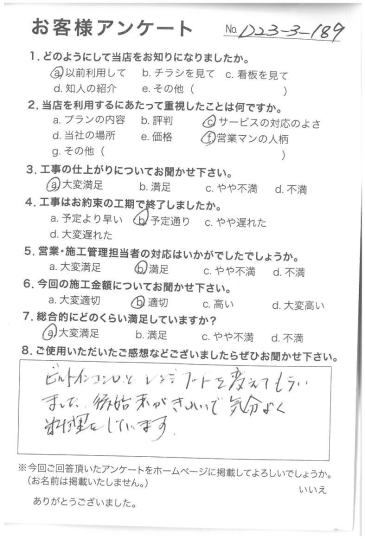 お客様アンケート No. D23-3-189
1. どのようにして当店をお知りになりましたか。
a. 以前利用して b. チラシを見て c. 看板を見て
d. 知人の紹介 e. その他 ( )
2. 当店を利用するにあたって重視したことは何ですか。
a. プランの内容 b. 評判 c. サービスの対応のよさ
d. 当社の場所 e. 価格 f. 営業マンの人柄
g. その他 ( )
3. 工事の仕上がりについてお聞かせ下さい。
a. 大変満足 b. 満足 c. やや不満 d. 不満
4. 工事はお約束の工期で終了しましたか。
a. 予定より早い b. 予定通り c. やや遅れた
d. 大変遅れた
5. 営業・施工管理担当者の対応はいかがでしたでしょうか。
a. 大変満足 b. 満足 c. やや不満 d. 不満
6. 今回の施工金額についてお聞かせ下さい。
a. 大変適切 b. 適切 c. 高い d. 大変高い
7. 総合的にどのくらい満足していますか?
a. 大変満足 b. 満足 c. やや不満 d. 不満
8. ご使用いただいたご感想などございましたらぜひお聞かせ下さい。
ビルトインコンロと レンジフードを変えてもらい
ました。後始末がきれいで気分よく
お料理をしています。
※今回ご回答頂いたアンケートをホームページに掲載してよろしいでしょうか。
(お名前は掲載いたしません。) いいえ
ありがとうございました。